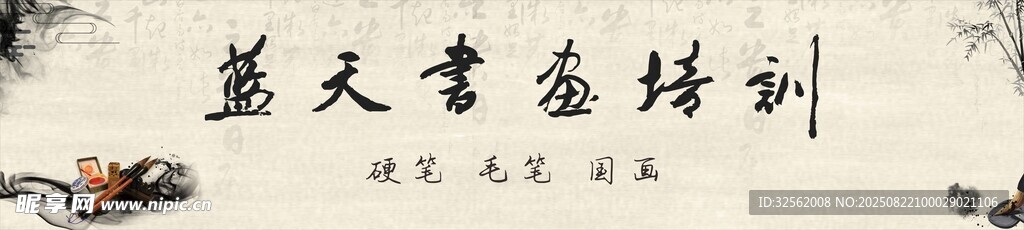 蓝天書画培訓
硬笔 毛笔 国画
昵享网 www.nipic.cn
ID:32562008 NO:20250822100029021106